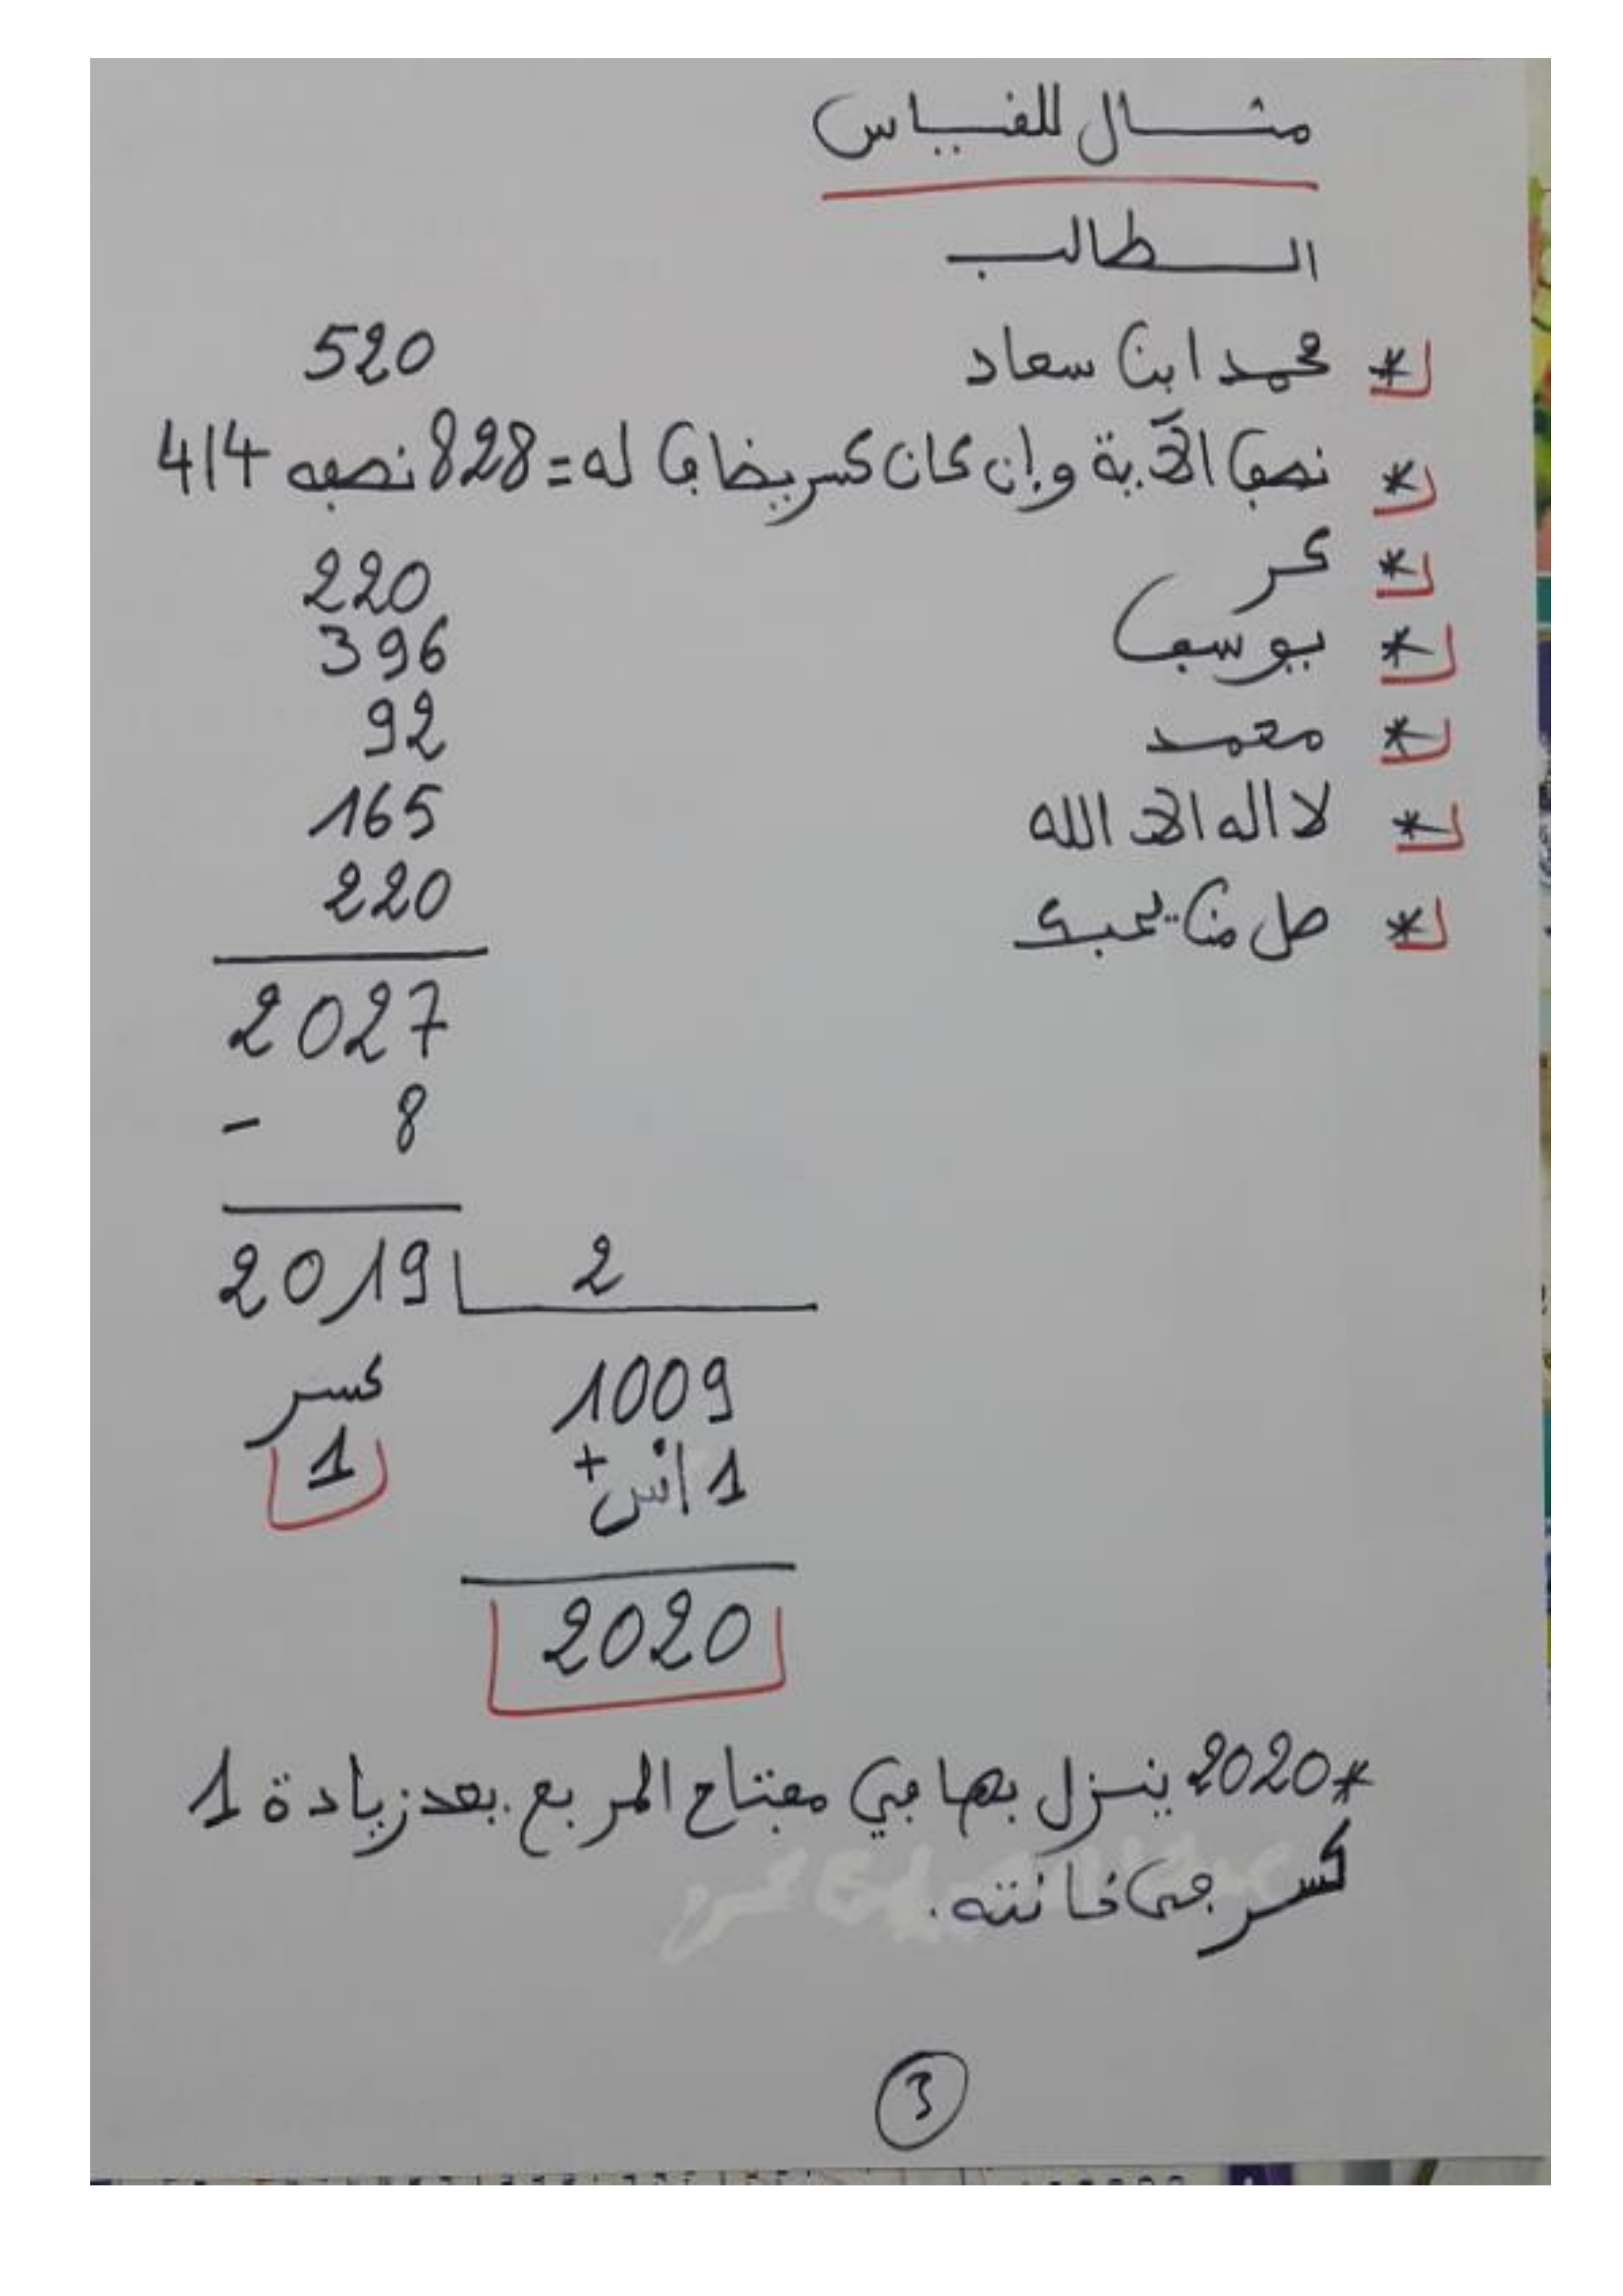 مثال للفياس
الطالب
* محمد ابن سعاد 520
* نصف الآية وإن كان كسر يضاف له = 828 نصفه 414
* كر 220
* يوسف 396
* محمد 92
* لا اله الا الله 165
* 220
2027
- 8
2019 2
كسر 1009
1 + 1 اس
2020
*2020 ينزل بها في مفتاح المربع بعد زيادة 1
كسر في خانته.
3